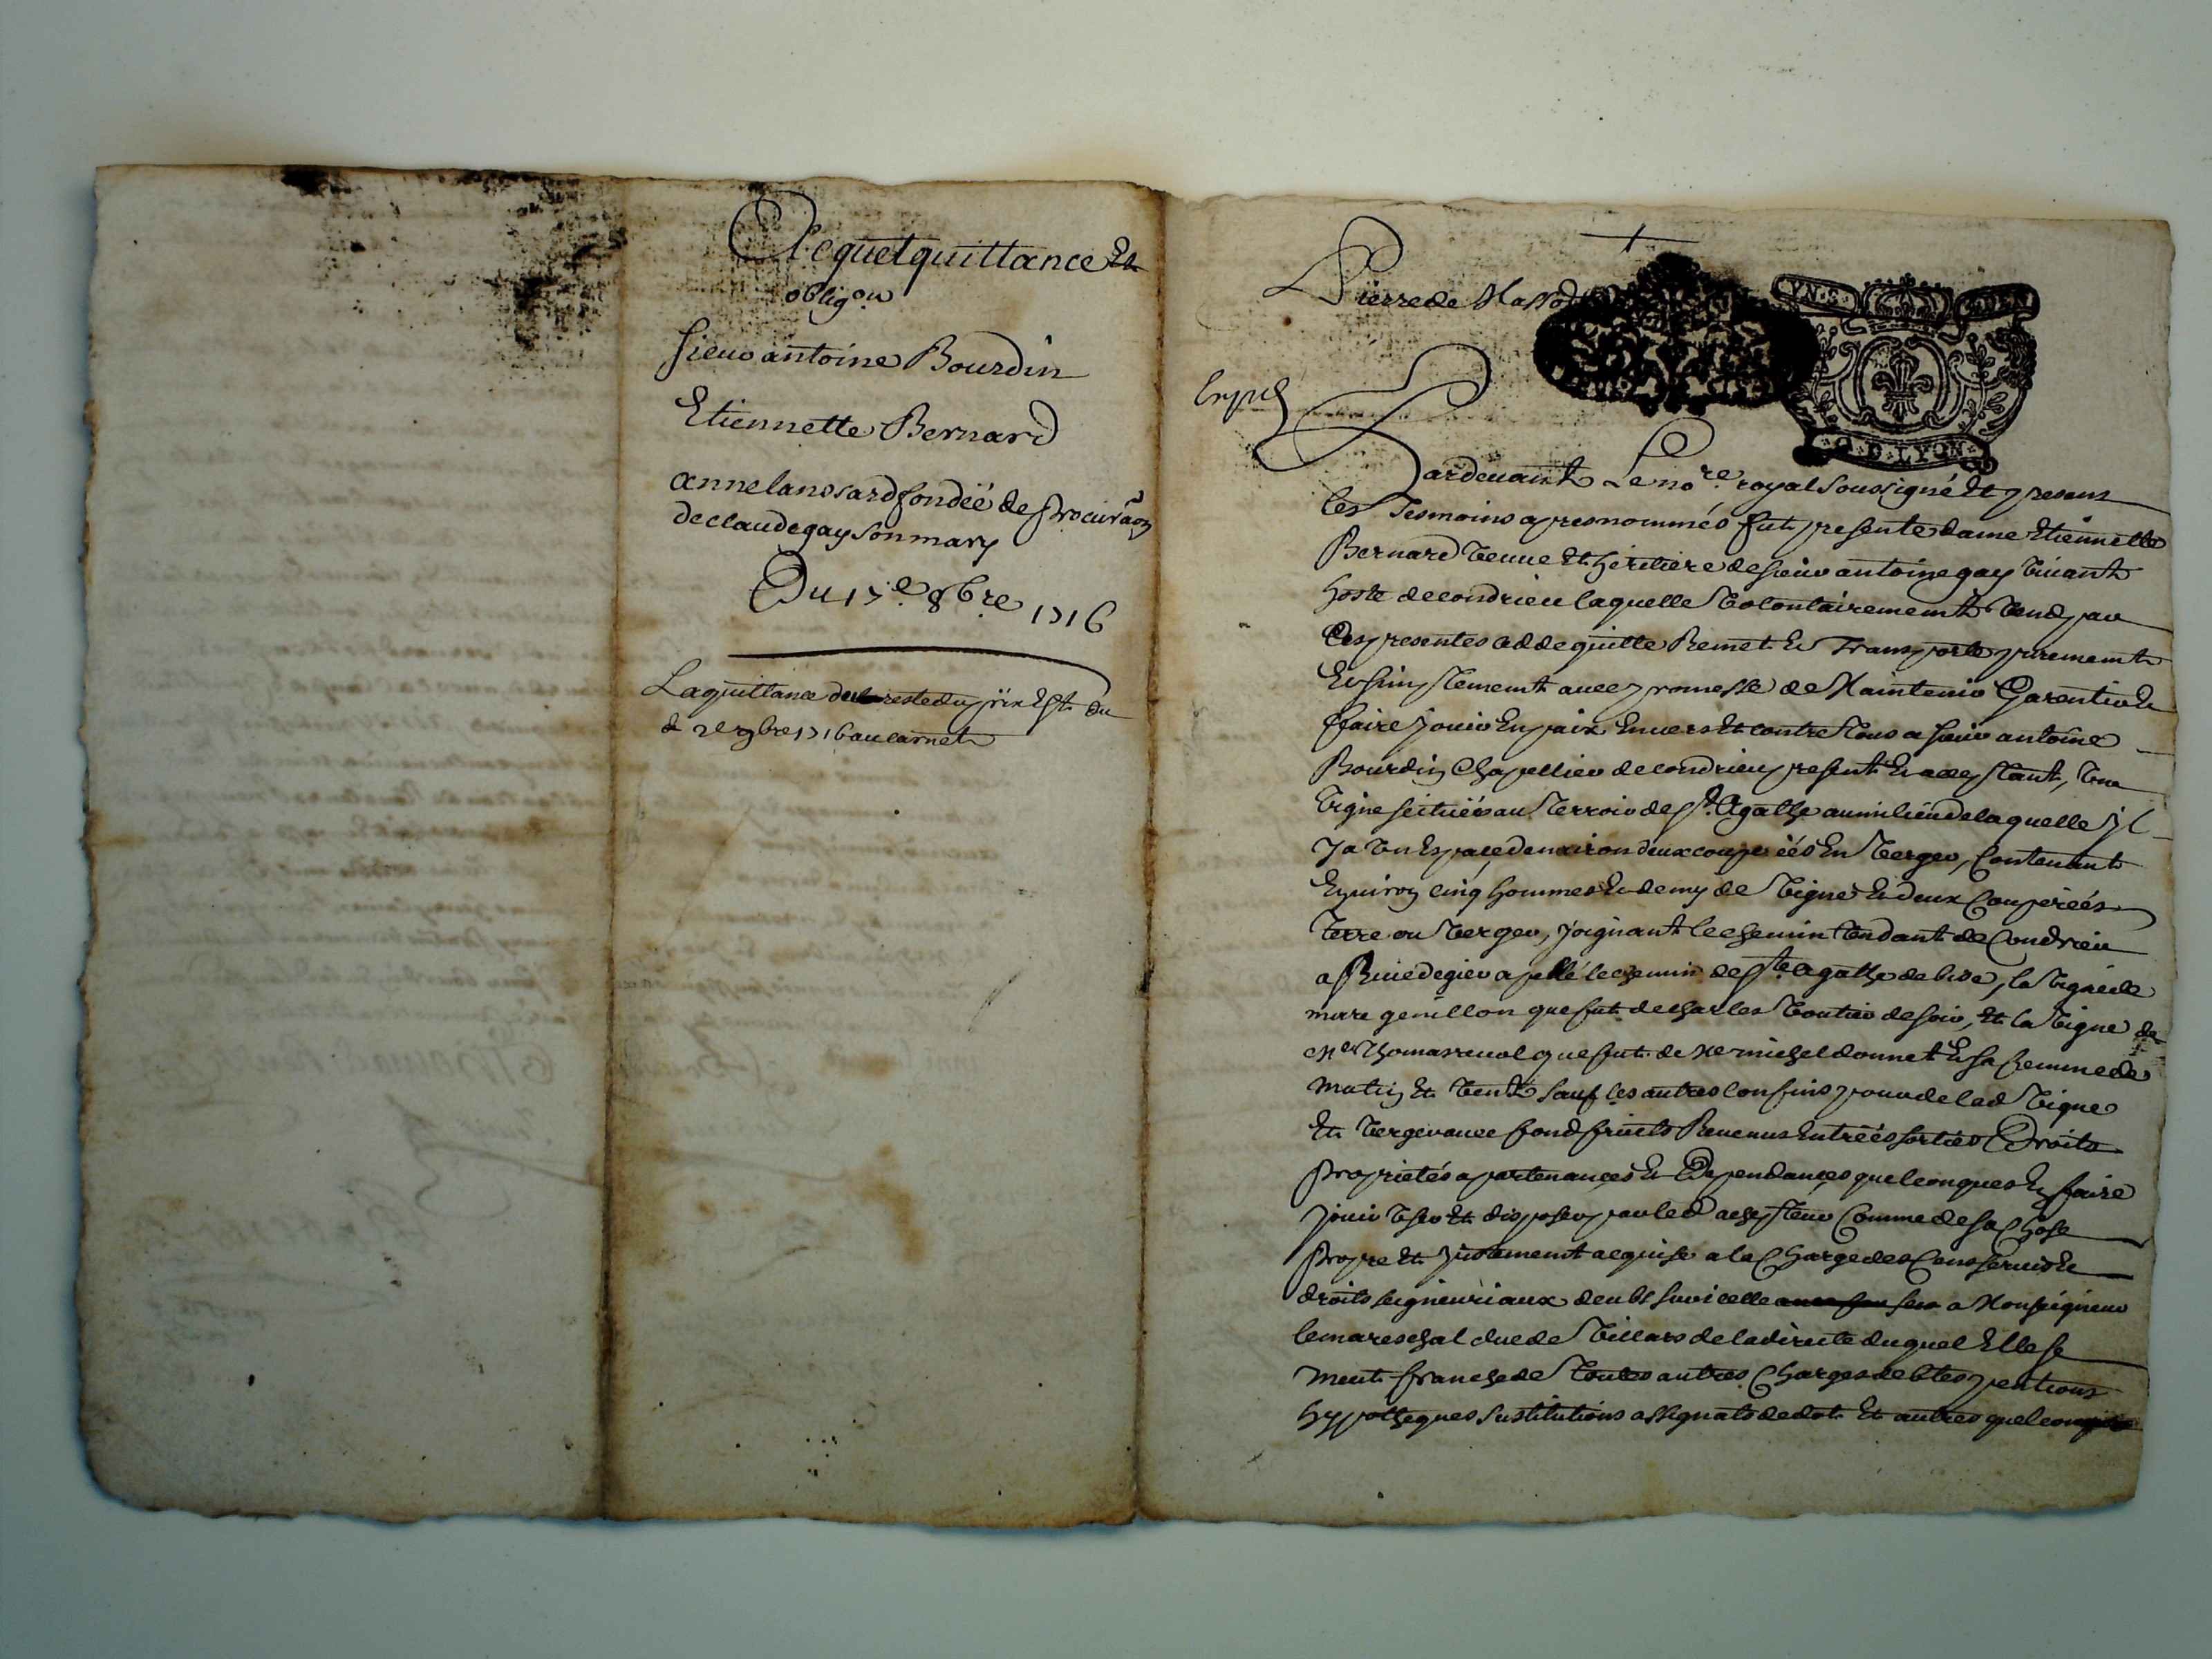 Acquet quittance Et
obligon
sieur antoine Bourdin
Etiennette Bernard
anne lanssard fondéé de procuraon
de claude gay son mary
Du 17e 8bre 1716
La quittance du reste du prix Est du
2e 9bre 1716 au carnet
Pierre de Masso
YN.S DEN
G.D.LYON
Expd
Pardevant Le nore royal soussigné Et presens
les Tesmoins apres nommés fut presente dame Etiennette
Bernard veuve Et héritiere de sieur antoine gay vivant
hoste de condrieu laquelle volontairement vend par
Ces presentes cedde quitte Remet Et Transporte purement
Et simplement avec promesse de Maintenir Garentir Et
ffaire Jouir En paix Envers Et contre Tous a sieur antoine
Bourdin Chapellier de condrieu present Et acceptant, vne
vigne scituéé au Terroir de Ste Agathe au milieu de laquelle Jl
y a vn Espace denviron deux couperéés En verger, Contenant
Environ cinq hommes Et demy de vigne Et deux Couperéés
Terre ou verger, Joignant le chemin tendant de Condrieu
a Rivedegier apellé le chemin de Ste agathe de bise, la vigne de
que fut de charles de soir, Et la vigne de
Me Thomas que fut de Me michel donnet Et sa femme de
matin Et vent sauf les autres Confins pour de lad vigne
Et verger avec fond fruits Revenus Entréés sorties Droits
Proprietés apartenances Et Dependances quelconques En faire
Jouir vser Et disposer par led accepteur Comme de sa Chose
Propre Et Justement acquise a la Charge des Cens servis Et
droits seigneuriaux deubs sur icelle a Monseigneur
le mareschal duc de villars de la directe duquel Elle se
meut franche de Toutes autres Charges debtes pentions
hypotheques sustitutions assignats de dot Et autres quelconques